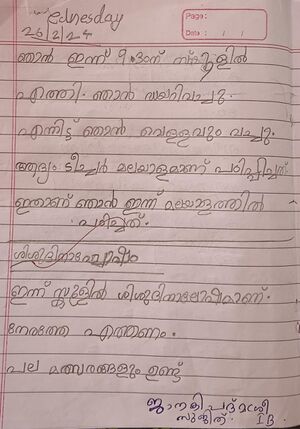 Wednesday
26/2/24
Page:
Date: / /
ഞാൻ ഇന്ന് 9.30ന് സ്കൂളിൽ
എത്തി. ഞാൻ ഡയറിവച്ചു.
എന്നിട്ട് ഞാൻ വെള്ളവും വച്ചു.
ആദ്യം ടീച്ചർ മലയാളമാണ് പഠിപ്പിച്ചത്
ഇതാണ് ഞാൻ ഇന്ന് മലയാളത്തിൽ
പഠിച്ചത്.
ശിശുദിനാഘോഷം
ഇന്ന് സ്കൂളിൽ ശിശുദിനാഘോഷമാണ്.
നേരത്തേ എത്തണം.
പല മത്സരങ്ങളും ഉണ്ട്
ജാനകി പദ്മശ്രീ
സുജിത്. I B